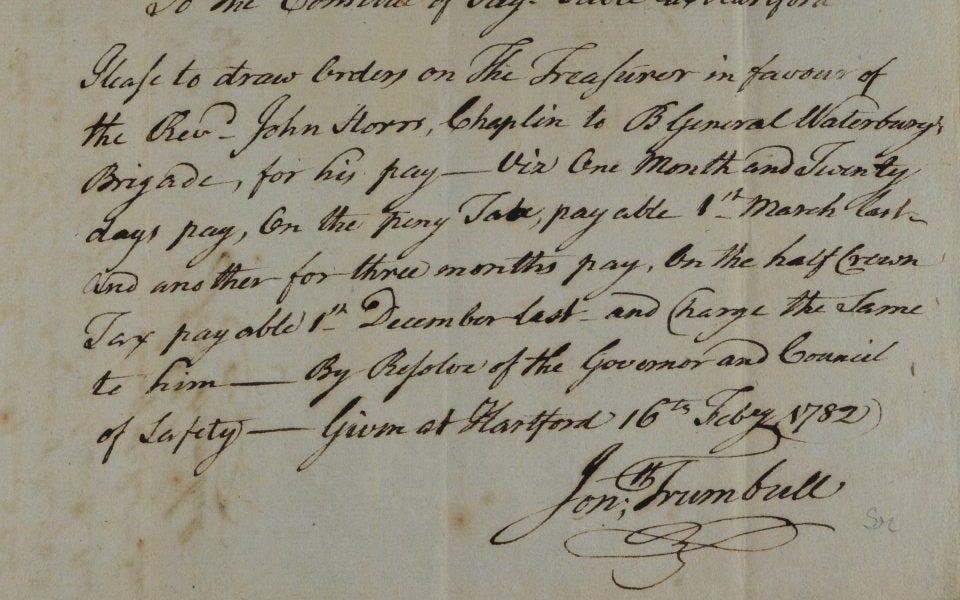 To the Comttee of Pay Table at Hartford
Please to draw Orders on The Treasurer in favour of
the Revd John Storrs, Chaplin to B General Waterbury's
Brigade, for his pay — Viz One Month and Twenty
days pay, On the peny Tax, payable 1st March last
and another for three months pay, On the half Crown
Tax payable 1st December last and Charge the Same
to him — By Resolve of the Governor and Council
of Safety — Given at Hartford 16th Feby 1782
Jonth; Trumbull